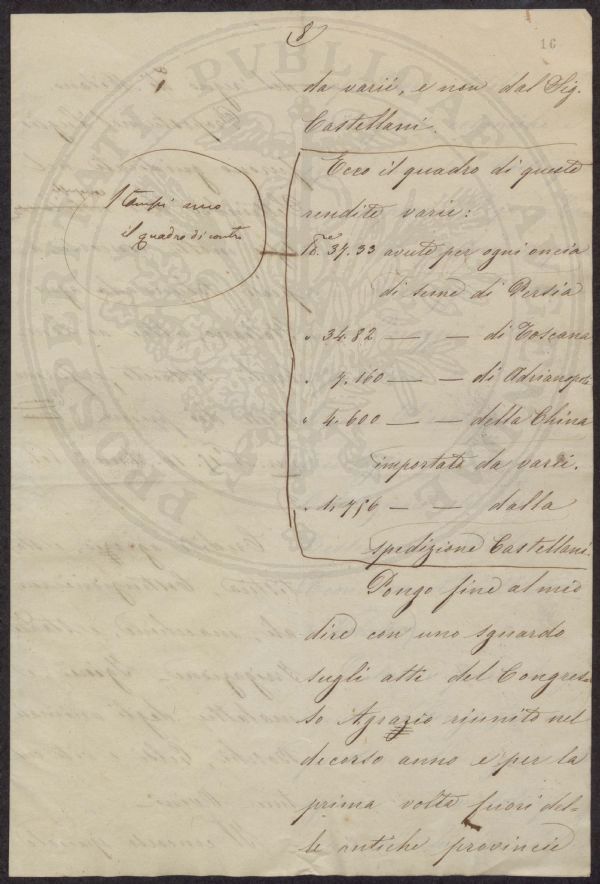 8
16
da varii, e non dal Sig.
Castellani.
Ecco il quadro di queste
rendite varie:
37.33 avute per ogni oncia
di seme di Persia
" 34.82 — — di Toscana
" 7.160 — — di Adrianopoli
" 4.600 — — della China
importata da varii.
" 1.756 — — dalla
spedizione Castellani.
Stampi
il quadro di contro
Pongo fine al mio
dire con uno sguardo
sugli atti del Congres-
so Agrario riunito nel
decorso anno e per la
prima volta fuori del-
le antiche provincie
PROSPERITATI PUBLICAE AUGENDAE